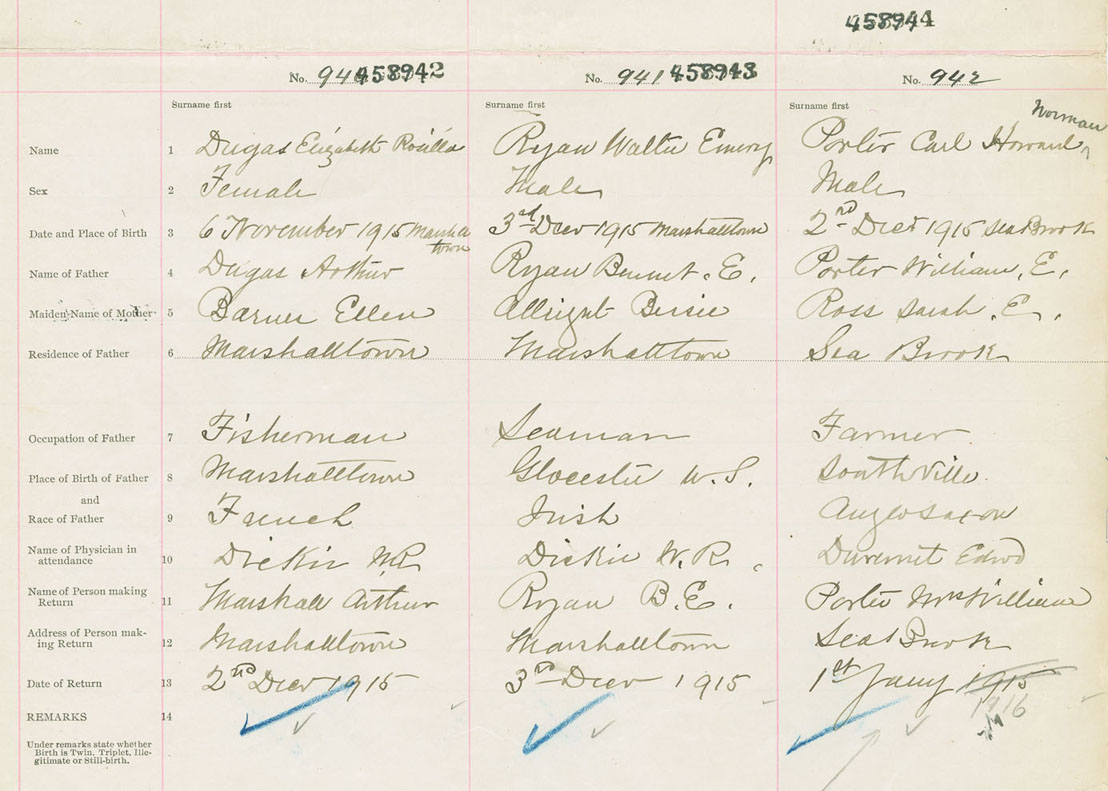 458944
No. 940 458942 No. 941 458943 No. 942
Surname first Surname first Surname first
Norman
Name 1 Dugas Elizabeth Rosilla Ryan Walter Emery Porter Carl Howard
Sex 2 Female Male Male
Date and Place of Birth 3 6 November 1915 Marshalltown 3rd Decr 1915 Marshalltown 2nd Decr 1915 Sea Brook
Name of Father 4 Dugas Arthur Ryan Bennet. E. Porter William. E.
Maiden Name of Mother 5 Ellen Bessie Ross Sarah. E.
Residence of Father 6 Marshalltown Marshalltown Sea Brook
Occupation of Father 7 Fisherman Seaman Farmer
Place of Birth of Father 8 Marshalltown Glocester Southville
and
Race of Father 9 French Irish Anglo Saxon
Name of Physician in
attendance 10 Dickie W.R. Dickie W.R. Edwd
Name of Person making
Return 11 Marshall Arthur Ryan B.E. Porter Mrs William
Address of Person mak-
ing Return 12 Marshalltown Marshalltown Sea Brook
Date of Return 13 2nd Decr 1915 3rd Decr 1915 1st Jany 1915
1916
REMARKS 14
Under remarks state whether
Birth is Twin, Triplet, Ille-
gitimate or Still-birth.